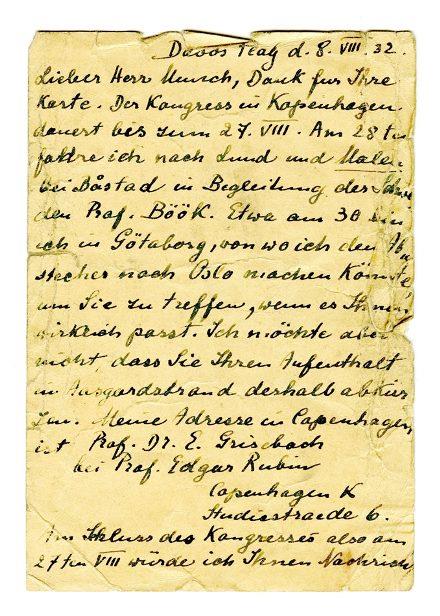 Davos Platz d. 8. VIII. 32.
Lieber Herr Munch, Dank für Ihre
Karte. Der Kongress in Kopenhagen
dauert bis zum 27. VIII. Am 28 ten
fahre ich nach Lund und Malen
bei Båstad in Begleitung des
den Prof. Böök. Etwa am 30 bin
ich in Götaborg, von wo ich den Ab
stecher nach Oslo machen könnte,
um Sie zu treffen, wenn es Ihnen
wirklich passt. Ich möchte aber
nicht, dass Sie Ihren Aufenthalt
in Aasgardstrand deshalb abkür
zen. Meine Adresse in Copenhagen
ist Prof. Dr. E. Grisebach
bei Prof. Edgar Rubin
Copenhagen K
Studiestraede 6.
Am Schluss des Kongresses also am
27 ten VIII würde ich Ihnen Nachricht